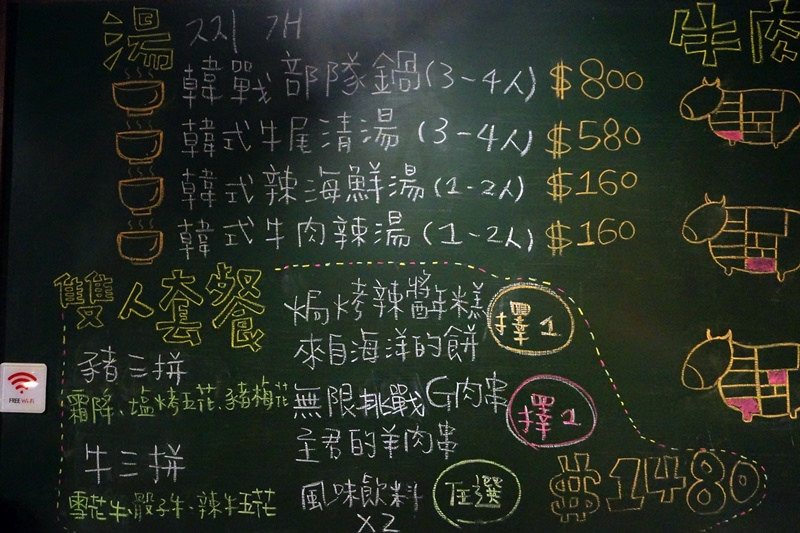 湯 찌개
韓戰部隊鍋(3-4人) $800
韓式牛尾清湯(3-4人) $580
韓式辣海鮮湯(1-2人) $160
韓式牛肉辣湯(1-2人) $160
牛肉
雙人套餐
豬三拼
霜降、塩烤五花、豬梅花
牛三拼
雪花牛、骰子牛、辣牛五花
焗烤辣醬年糕
來自海洋的餅
擇1
無限挑戰G肉串
主君的羊肉串
擇1
風味飲料
X2
任選
$1480
FREE Wi-Fi